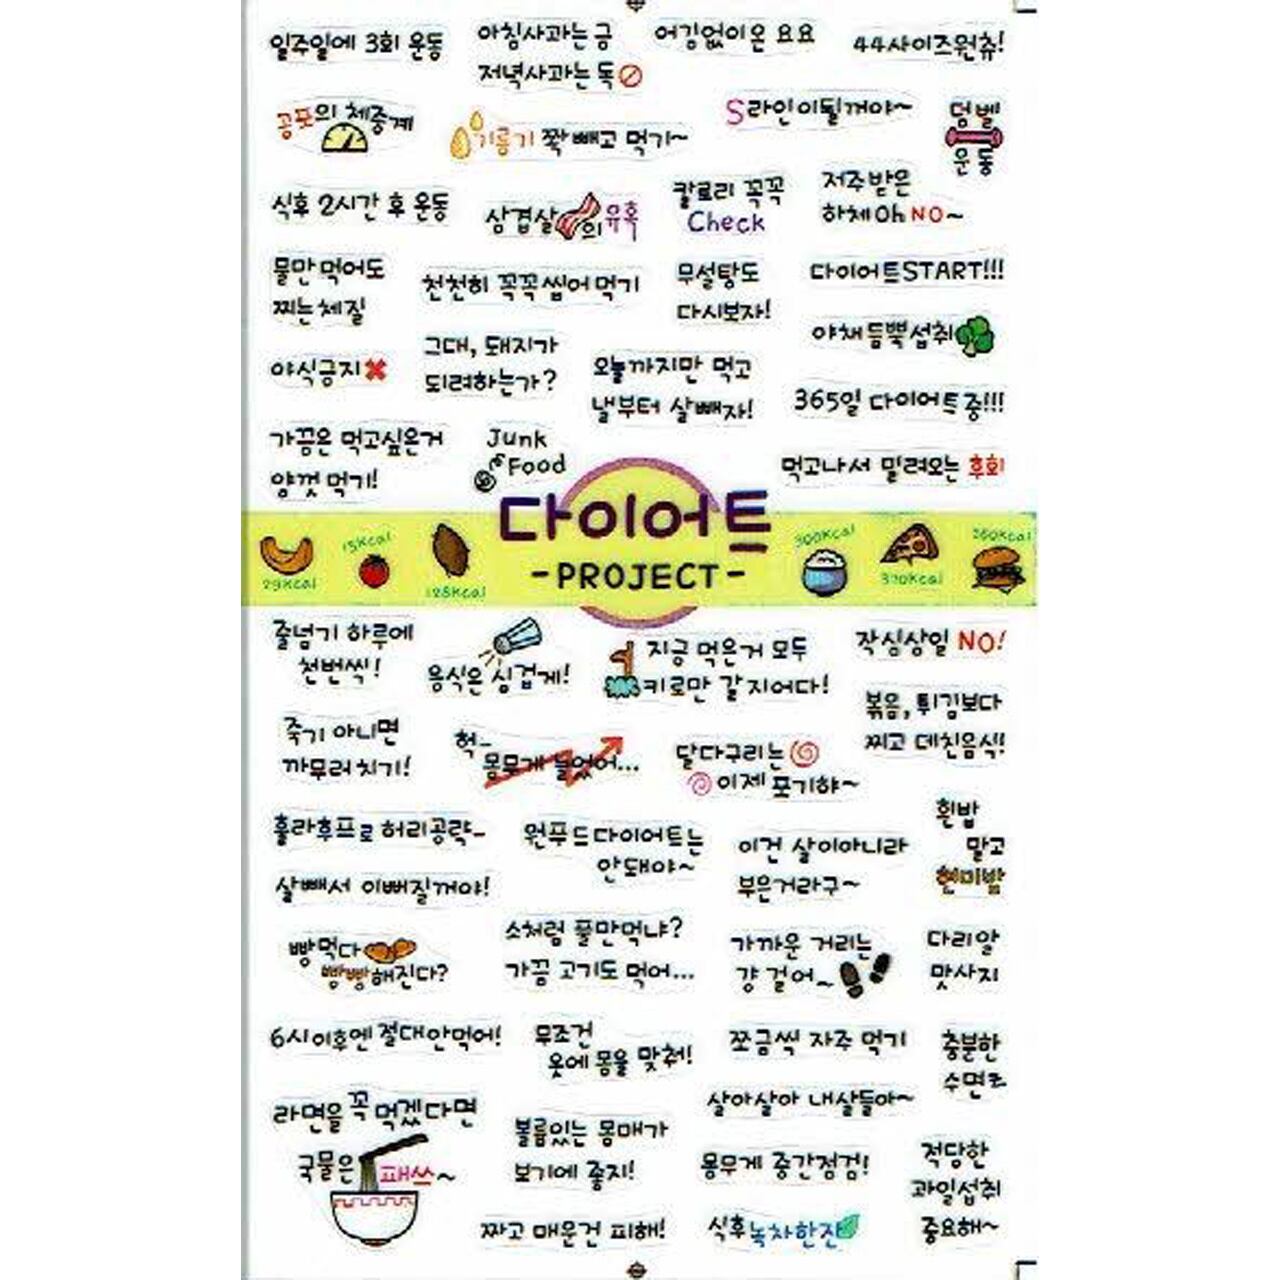 일주일에 3회 운동
아침사과는 금
저녁사과는 독
어김없이 온 요요
44사이즈원츄!
공포의 체중계
기름기 쫙 빼고 먹기~
S라인이될꺼야~
덤벨
운동
식후 2시간 후 운동
삼겹살의 유혹
칼로리 꼭꼭
Check
저주받은
하체Oh NO~
물만 먹어도
찌는체질
천천히 꼭꼭 씹어 먹기
무설탕도
다시보자!
다이어트START!!!
야채듬뿍섭취
야식금지
그대, 돼지가
되려하는가?
오늘까지만 먹고
낼부터 살빼자!
365일 다이어트중!!!
가끔은 먹고싶은거
양껏 먹기!
Junk
Food
먹고나서 밀려오는 후회
다이어트
-PROJECT-
29Kcal
15Kcal
128Kcal
300Kcal
370Kcal
360Kcal
줄넘기 하루에
천번씩!
음식은 싱겁게!
지금 먹은거 모두
키로만 갈지어다!
작심삼일 NO!
볶음, 튀김보다
찌고 데친음식!!
죽기 아니면
까무러치기!
헉~
몸무게 늘었어...
달다구리는
이제 포기햐~
훌라후프로 허리공략~
원푸드다이어트는
안돼야~
이건 살이아니라
부은거라구~
흰밥
말고
현미밥
살빼서 이뻐질꺼야!
빵먹다
빵빵해진다?
소처럼 풀만먹냐?
가끔 고기도 먹어...
가까운 거리는
걍 걸어~
다리알
맛사지
6시이후엔 절대안먹어!
무조건
옷에 몸을 맞춰!
쪼금씩 자주 먹기
충분한
수면z
라면을 꼭 먹겠다면
국물은 패쓰~
볼륨있는 몸매가
보기에 좋지!
살아살아 내살들아~
몸무게 중간점검!
적당한
과일섭취
중요해~
짜고 매운건 피해!
식후녹차한잔